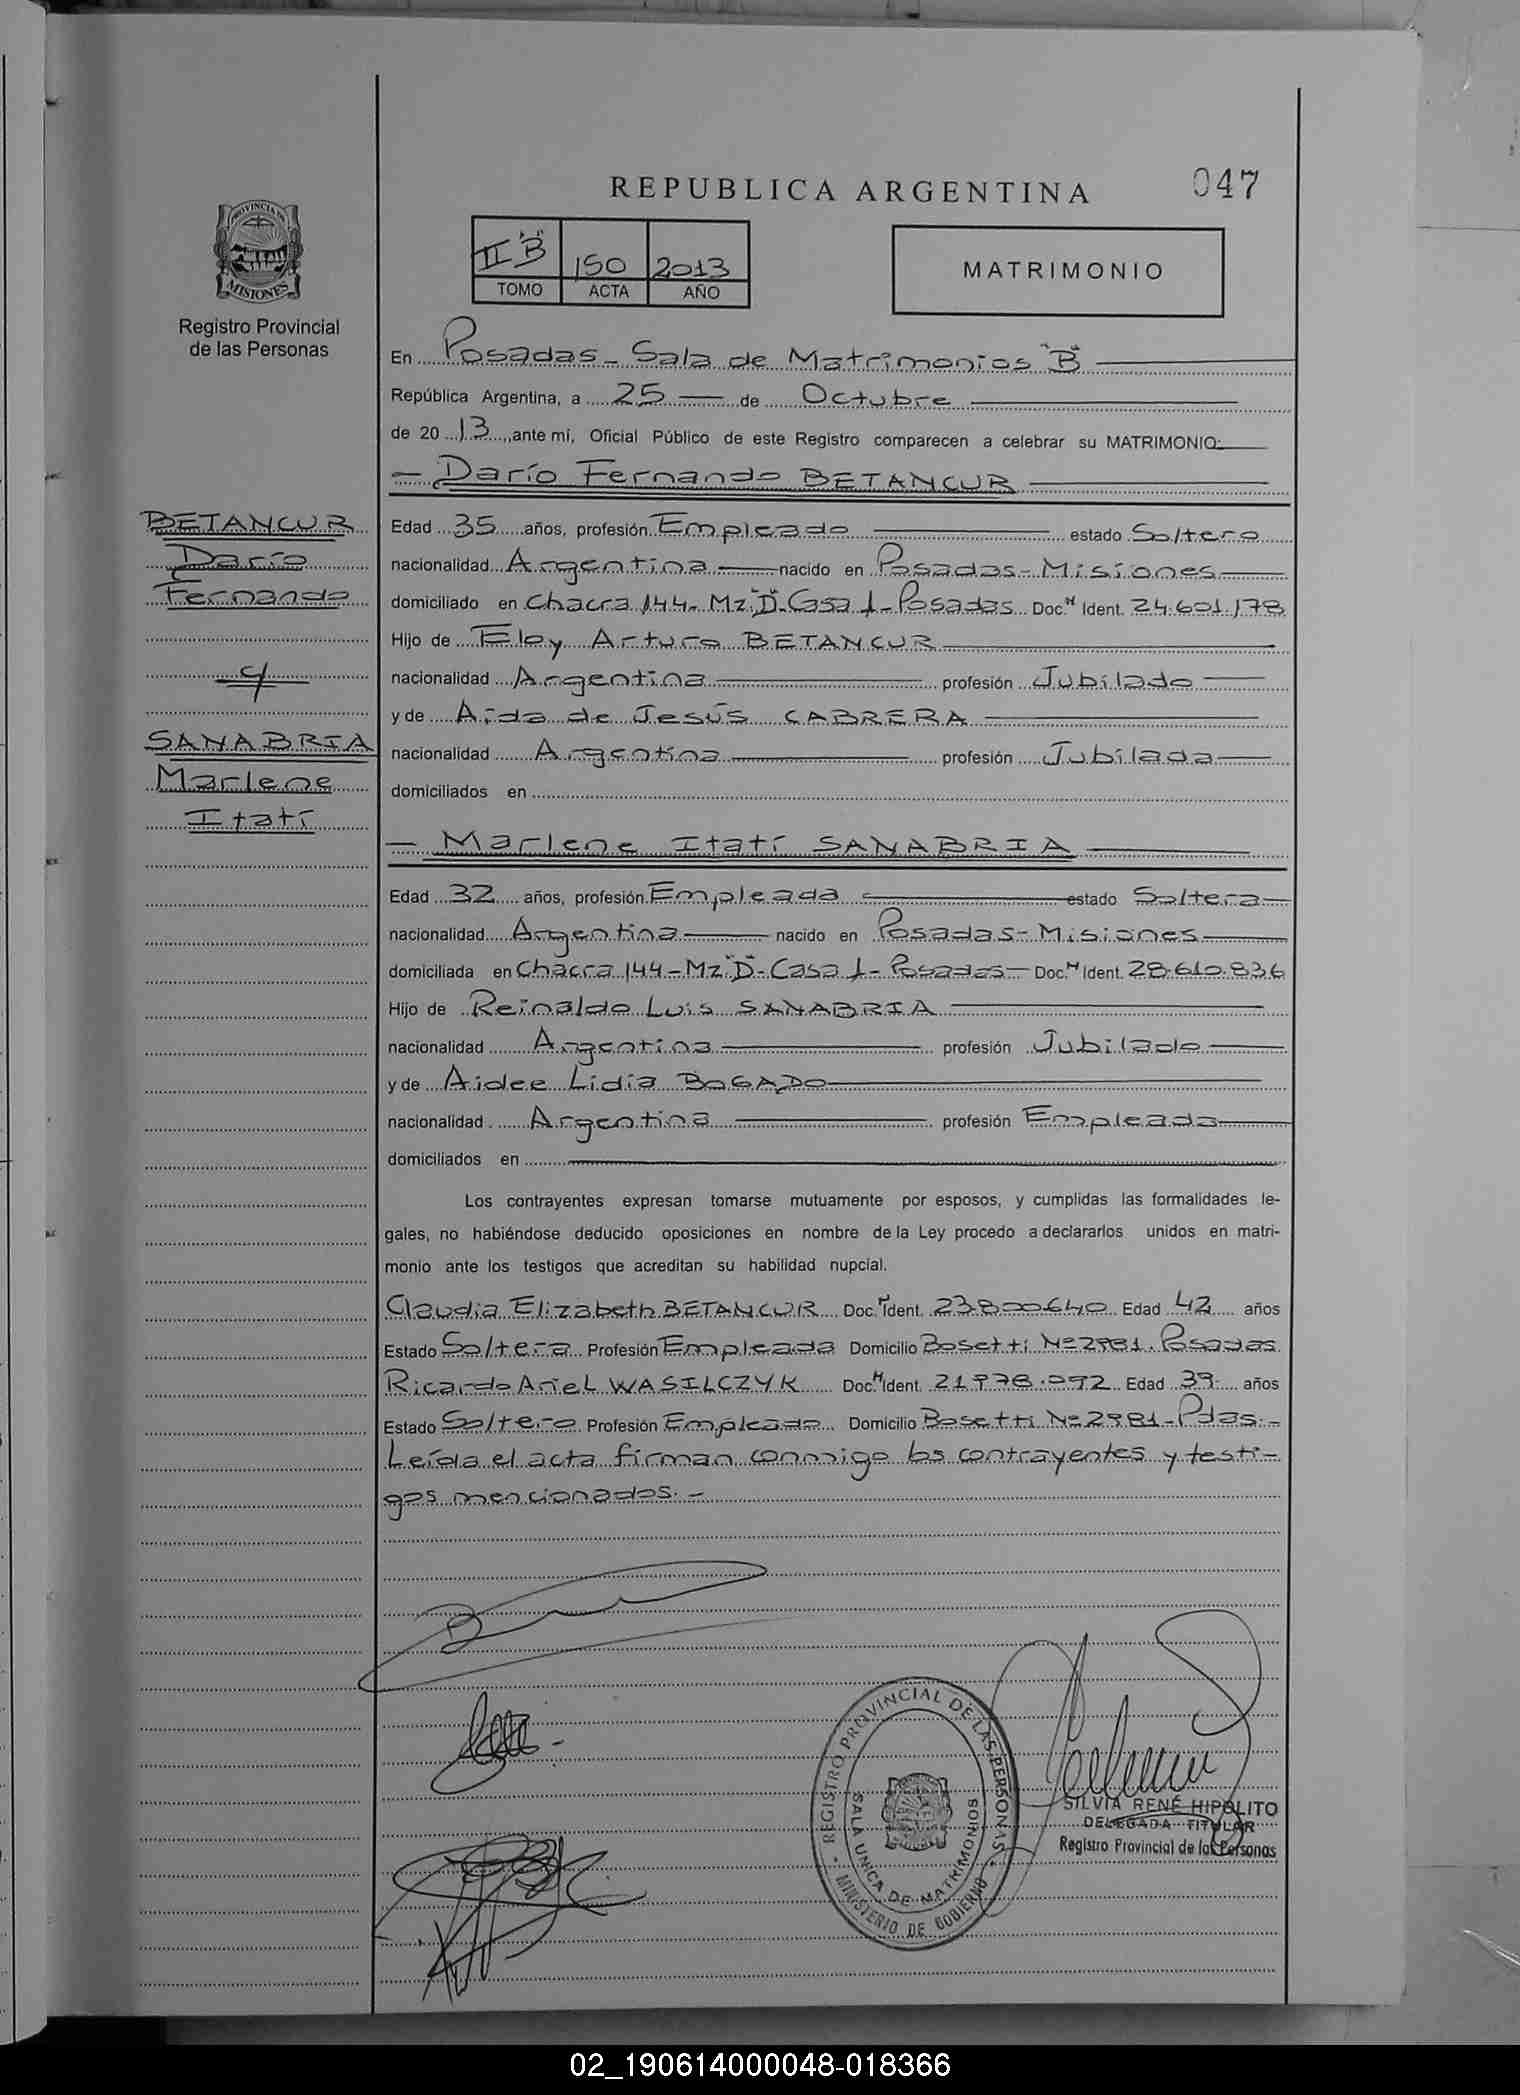 REPUBLICA ARGENTINA
047
PROVINCIA DE
MISIONES
Registro Provincial
de las Personas
II "B" 150 2013
TOMO ACTA AÑO
MATRIMONIO
En Posadas - Sala de Matrimonios "B"
República Argentina, a 25 de Octubre
de 2013, ante mí, Oficial Público de este Registro comparecen a celebrar su MATRIMONIO:
- Darío Fernando BETANCUR
BETANCUR
Darío
Fernando
c/
SANABRIA
Marlene
Itatí
Edad 35 años, profesión Empleado estado Soltero
nacionalidad Argentina nacido en Posadas - Misiones
domiciliado en Chacra 144 - Mz. "D" - Casa 1 - Posadas Doc. N Ident. 24.601.178
Hijo de Eloy Arturo BETANCUR
nacionalidad Argentina profesión Jubilado
y de Aida de Jesús CABRERA
nacionalidad Argentina profesión Jubilada
domiciliados en
- Marlene Itatí SANABRIA
Edad 32 años, profesión Empleada estado Soltera
nacionalidad Argentina nacido en Posadas - Misiones
domiciliada en Chacra 144 - Mz "D" - Casa 1 - Posadas Doc. N Ident. 28.610.836
Hijo de Reinaldo Luis SANABRIA
nacionalidad Argentina profesión Jubilado
y de Aidee Lidia BOGADO
nacionalidad Argentina profesión Empleada
domiciliados en
Los contrayentes expresan tomarse mutuamente por esposos, y cumplidas las formalidades le-
gales, no habiéndose deducido oposiciones en nombre de la Ley procedo a declararlos unidos en matri-
monio ante los testigos que acreditan su habilidad nupcial.
Claudia Elizabeth BETANCUR Doc. N Ident. 23.800640 Edad 42 años
Estado Soltera Profesión Empleada Domicilio Bosetti Nº 2981. Posadas
Ricardo Ariel WASILCZYK Doc. N Ident. Edad 39 años
Estado Soltero Profesión Empleado Domicilio Bosetti Nº 2981 - Pdas. -
Leída el acta firman conmigo los contrayentes y testi-
gos mencionados. -
REGISTRO PROVINCIAL DE LAS PERSONAS
SALA UNICA DE MATRIMONIOS
MINISTERIO DE GOBIERNO
SILVIA RENÉ HIPOLITO
DELEGADA TITULAR
Registro Provincial de las Personas
02_190614000048-018366